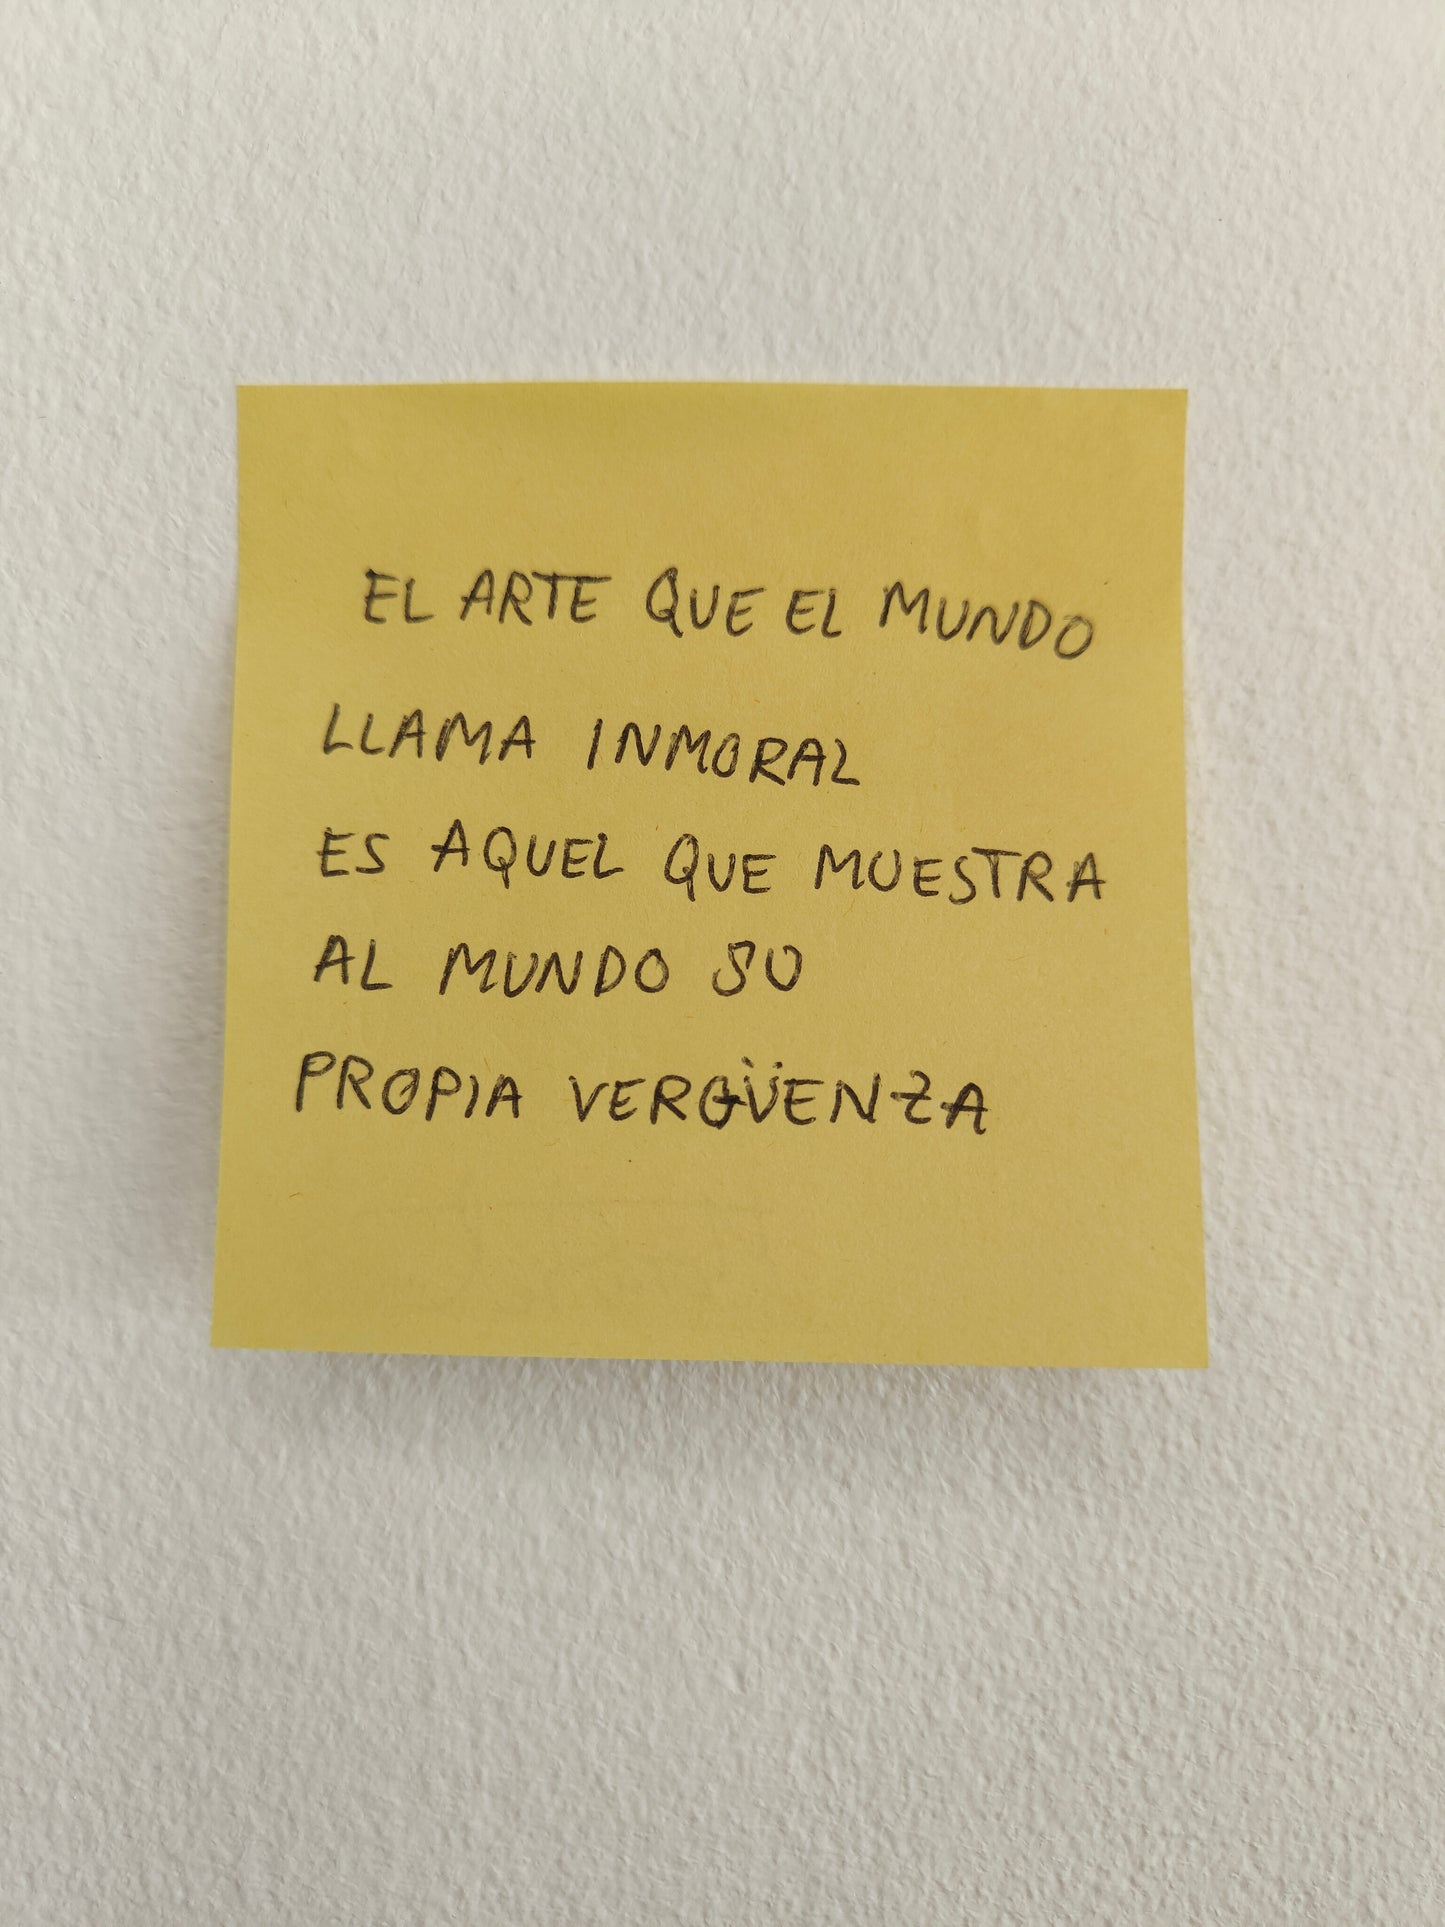 EL ARTE QUE EL MUNDO
LLAMA INMORAL
ES AQUEL QUE MUESTRA
AL MUNDO SU
PROPIA VERGÜENZA